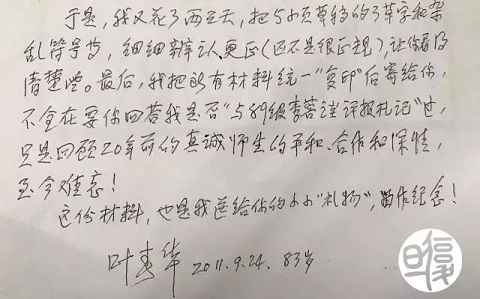 于是,我又花了两三天,把5小页草稿的了草字和杂
乱符号等,细细辨认更正(还不是很正规),让你看得
清楚些。最后,我把所有材料统一"复印"后寄给你,
不全在要你回答我是否"与89级李蓉谈评报札记"过,
只是回顾20年前的真诚师生的平和、合作和深情,
至今难忘!
这份材料,也是我送给你的小小"礼物",留作纪念!
叶春华 2011.9.24. 83岁